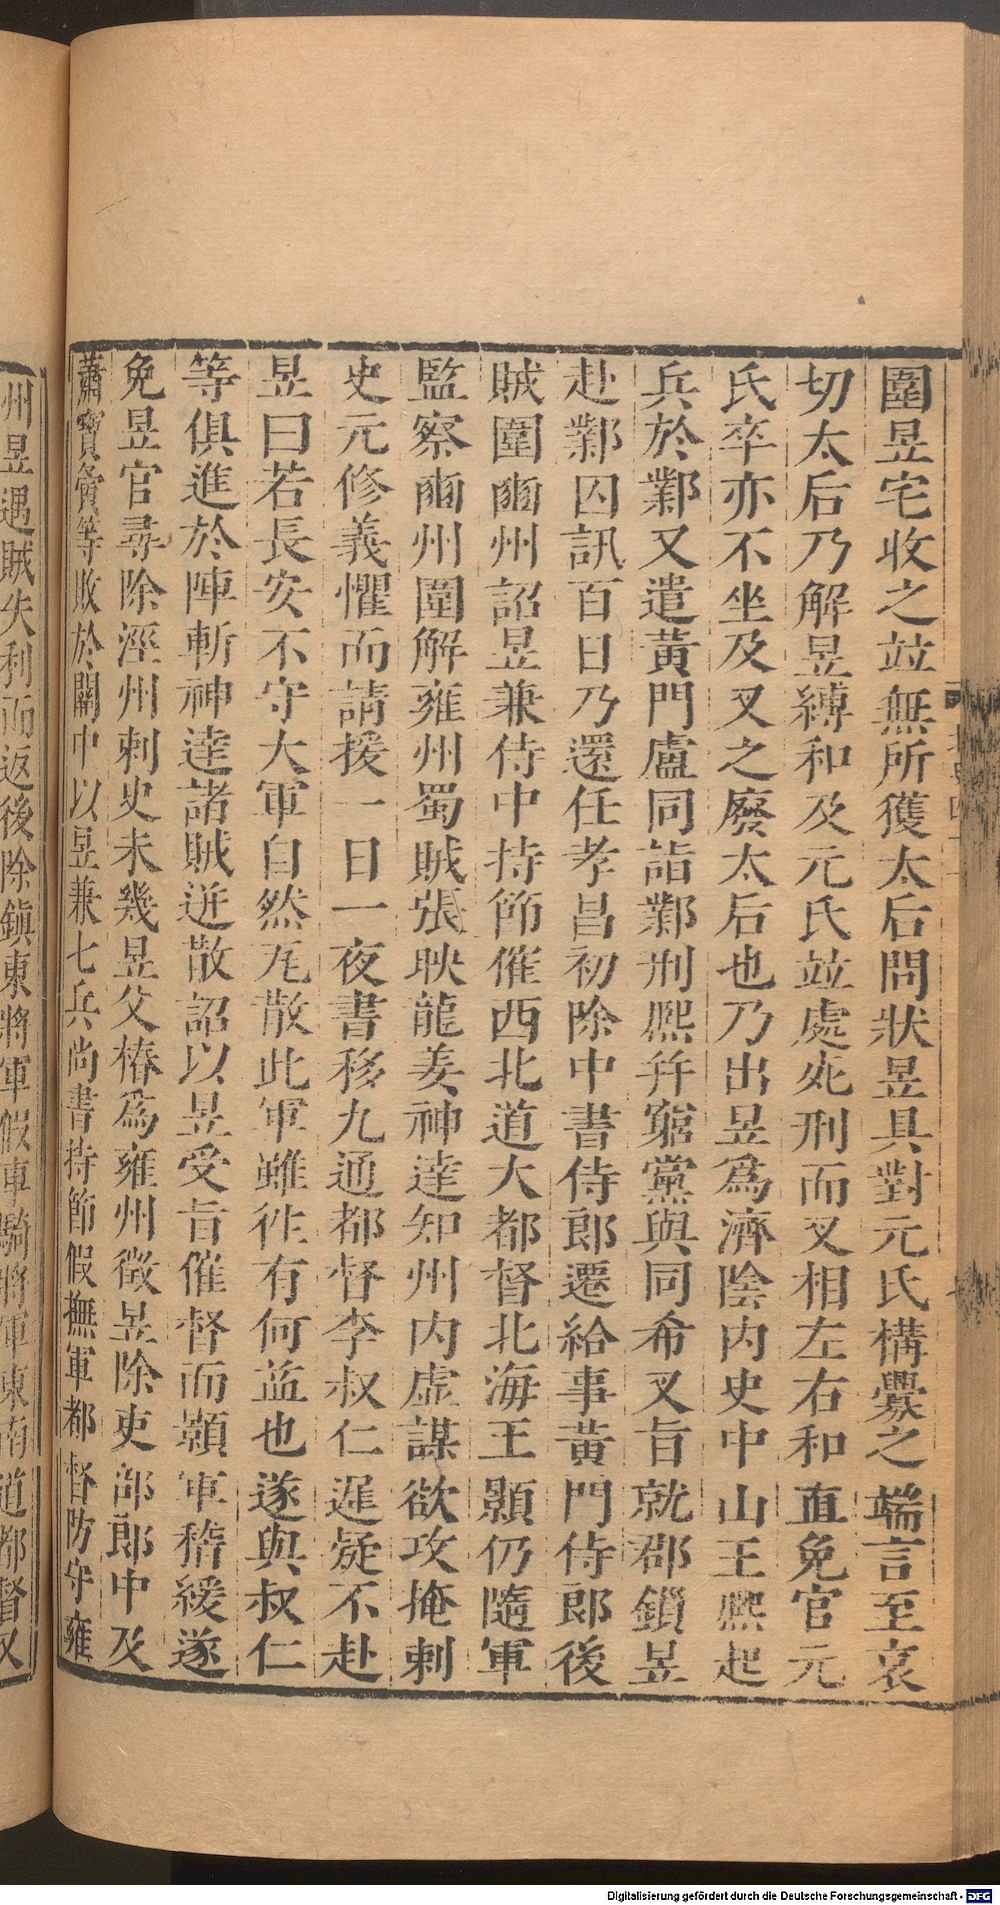 圍昱宅收之竝無所獲太后問狀昱具對元氏構釁之端言至哀
切太后乃解昱縛和及元氏竝處死刑而叉相左右和直免官元
氏卒亦不坐及叉之廢太后也乃出昱爲濟陰內史中山王熈起
兵於鄴叉遣黃門盧同詣鄴刑熈幷窮黨與同希叉旨就郡鎖昱
赴鄴囚訊百日乃還任孝昌初除中書侍郎遷給事黃門侍郎後
賊圍豳州詔昱兼侍中持節催西北道大都督北海王顥仍隨軍
監察豳州圍解雍州蜀賊張映龍姜神達知州內虛謀欲攻掩刺
史元修義懼而請援一日一夜書移九通都督李叔仁遲疑不赴
昱曰若長安不守大軍自然瓦散此軍雖徃有何益也遂與叔仁
等俱進於陣斬神達諸賊迸散詔以昱受旨催督而顥軍稽緩遂
免昱官尋除涇州刺史未幾昱父椿爲雍州徵昱除吏部郎中及
蕭寶夤等敗於關中以昱兼七兵尚書持節假撫軍都督防守雍
州昱遇賊失利而返後除鎭東將軍假車騎將軍東南道都督又
Digitalisierung gefördert durch die Deutsche Forschungsgemeinschaft - DFG